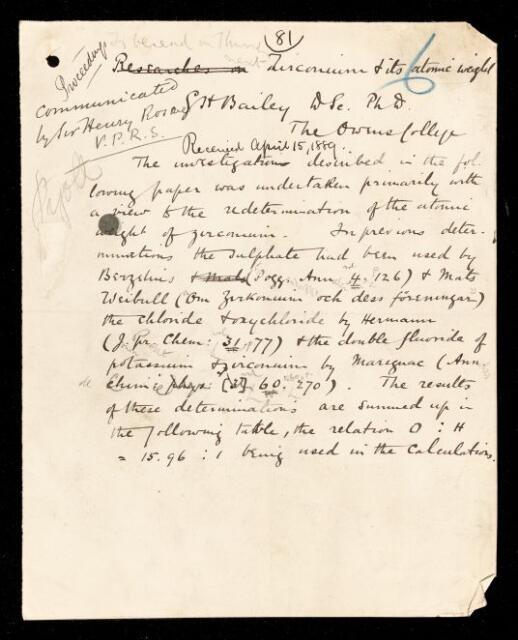 81
6
Proceedings
Researches on Zirconium & its atomic weight
communicated
by Sir Henry Roscoe
V. P. R. S.
G H Bailey D Sc. Ph D.
The Owens College
Received April 15, 1889.
The investigations described in the fol-
lowing paper was undertaken primarily with
a view to the redetermination of the atomic
weight of zirconium. In previous deter-
minations the sulphate had been used by
Berzelius (Pogg. Ann 4. 126) & Mats
Weibull (Om Zirkonium och dess föreningar)
the chloride & oxychloride by Hermann
(J. Pr. Chem: 31. 77) & the double fluoride of
potassium & zirconium by Marignac (Ann
Chim: phys: (3) 60. 270). The results
of these determinations are summed up in
the following table, the relation O : H
= 15.96 : 1 being used in the calculations.